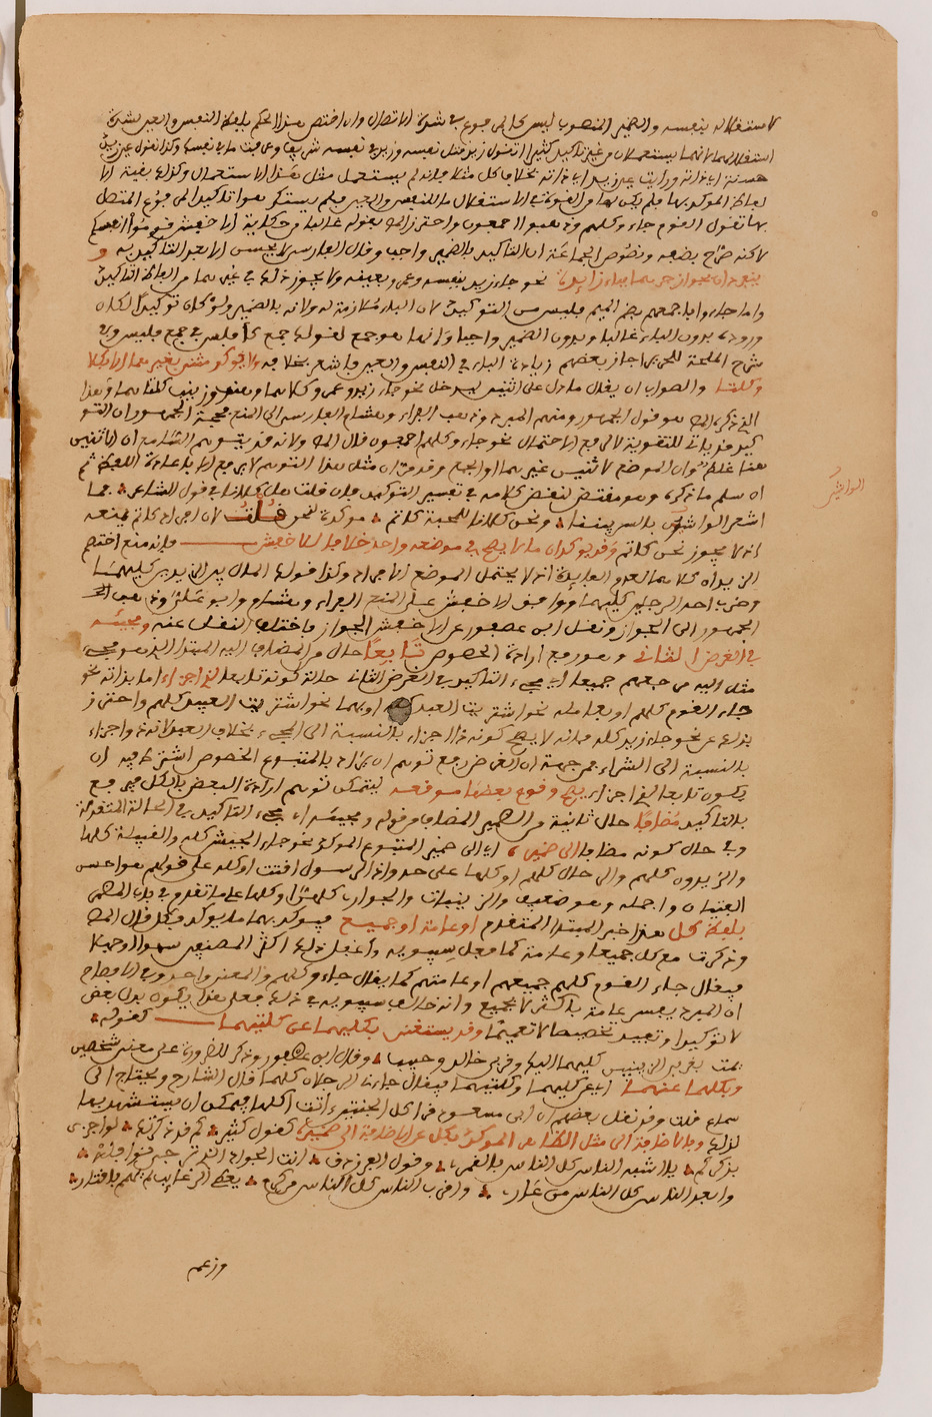 لاستقلاله بنفسه والضمير المنصوب ليس كالمرفوع في شدة الاتصال وان اختص هذا الحكم بلفظة النفس والعين لشدة
استقلالهما لانهما يستعملان من غير تاكيد كثيرا تقول زيد قتل نفسه وزيد في نفسه شريف وعرفت ما في نفسك وكذا تقول عين زيد
حسنة اي ذاته ورايت عين زيد اي ذاته بخلاف كل مثلا فانه لم يستعمل مثل هذا الاستعمال وكذلك بقية
لفاظ الموكد بها فلم يكن لها من القوة في الاستقلال ما للنفس والعين فلم يستنكروا تاكيد المرفوع المتصل
بها تقول القوم جاءوا كلهم وذهبوا اجمعون واحترز بقوله غالبا من حكاية الاخفش قوموا انفسكم
لاكنه صرح بضعفه ونصوص الجماعة ان التاكيد بالضمير واجب وقال الفارسي لا يحسن الا بعد التاكيد به و
ينفردان بجواز جرهما بباء زايدة نحو جاء زيد بنفسه وعمرو بعينه ولا يجوز ذلك في غيرهما من الفاظ التاكيد
واما جاءوا باجمعهم بضم الميم فليس من التوكيد لان الباء ملازمة له ولانه بالضمير ولو كان توكيدا لكان
وروده بدون الباء غالبا وبدون الضمير واجبا وانما هو جمع لقولك جمع كافلس في جمع فلس وفي
شرح الملحة للحريري اجاز بعضهم زيادة الباء في النفس والعين واشعر بخلافه ولا يوكد مثنى بغيرهما الا بكلا
وكلتا والصواب ان يقال ما دل على اثنين ليدخل نحو جاء زيد وعمرو كلاهما وهند وزينب كلتاهما وهذا
الذي ذكره هو قول الجمهور ومنهم المبرد وذهب الفراء وهشام الفارسي الى المنع محجة الجمهور ان التو
كيد قد ياتي للتقوية لا لرفع الاحتمال نحو جاءوا كلهم اجمعون قال ولانه قد يتوهم السامع ان الاثنين
هنا غلط وان الموضع لاثنين غيرهما او لجمع وقدمت ان مثل هذا التوهم لا يرفع الا باعادة اللفظ ثم
ان سلم ما ذكره وهو مقتض لنقض كلامه في تفسير التوكيد فان قلت هل كلانا في قول الشاعر فما
اشعر الواشون بالسر بيننا ونحن كلانا للمحبة كاتم موكدة لنحن قلت لان افراد كاتم يمنعه
اذ لا يجوز نحن كاتم وقد يوكدان ما لا يصح في موضعه واحد خلافا للاخفش فانه منع اختصم
الزيدان كلاهما لعدم الفايدة اذ لا يحتمل الموضع الافراد وكذا قولك المال بين الزيدين كليهما
وضرب احد الرجلين كليهما ووافق الاخفش على المنع الفراء وهشام وابو علي وذهب
الجمهور الى الجواز ونقل ابن عصفور عن الاخفش الجواز فاختلف النقل عنه ومجيئه
في الغرض الثاني وهو رفع ارادة الخصوص تابعا حال من المضاف اليه المبتدا الذي هو مجيء
مثل اليه مرجعهم جميعا اي مجيء التاكيد في الغرض الثاني حالة كونه تابعا لذي اجزاء اما بذاته نحو
جاء القوم كلهم او بعامله نحو اشتريت العبد كله او بهما نحو اشتريت العبيد كلهم واحترز
بذلك عن نحو جاء زيد كله فانه لا يصح كونه ذا اجزاء بالنسبة الى المجيء بخلاف العبد لانه ذو اجزاء
بالنسبة الى الشراء من جهة ان الغرض رفع توهم ان يراد بالمتبوع الخصوص اشترط فيه ان
يكون تابعا لذي اجزاء يصح وقوع بعضها موقعه ليتمكن توهم ارادة البعض بالكل فيرفع
بالتاكيد مضافا حال ثانية من الضمير المضاف من قوله ومجيئه اي مجيء التاكيد في الحالة المتقدمة
وفي حال كونه مضافا الى ضميره اي الى ضمير المتبوع الموكد نحو جاء الجيش كله والقبيلة كلها
والزيدون كلهم والى حال كلهم او كلها على حد واذا الرسل اقتت او كله على قولهم هو احسن
الفتيان واجمله وهو ضعيف والزينبات والجوارب كلهن او كلها على ما تقدم في باب المضمر
بلفظ كل هذا خبر المبتدا المتقدم او عامة او جميع فيوكد بهما ما يوكد بكل قال
وذكرت مع كل جميعا وعامة كما فعل سيبويه واغفل ذلك اكثر المصنفين سهوا او جهلا
فيقال جاء القوم كلهم جميعهم او عامتهم كما يقال جاءوا كلهم والمعنى واحد وفي الافصاح
ان المبرد يفسر عامة باكثر لا بجميع وانه خالف سيبويه في ذلك فعلى هذا يكون بدل بعض
لا توكيدا وتفيد تخصيصا لا تعميما وقد يستغنى بكليهما عن كلتيهما كقوله
يمت بقربى الزينبين كليهما اليك وقربى خالد وحبيب وقال ابن عصفور وذكر للضرورة على معنى شخصين
وبكلهما عنهما اي عن كليهما وكلتيهما فيقال جاءنا الرجلان كلهما قال الشارح ويحتاج الى
سماع قلت وقد نقل بعضهم ان ابن مسعود قرا كل الجنتين اتت اكلها فيمكن ان يستشهد بها
لذلك وبالاضافة الى مثل الظاهر الموكد بكل عن الاضافة الى ضميره كقول كثير كم قد ذكرتك لو اجزى
بذكركم يا اشبه الناس كل الناس بالقمر وقول الفرزدق انت الجواد الذي ترجى نوافله
وابعد الناس كل الناس من عار واقرب الناس كل الناس من كرم يعطي الرغايب لم يهمم باقتار
وزعم
الواشون